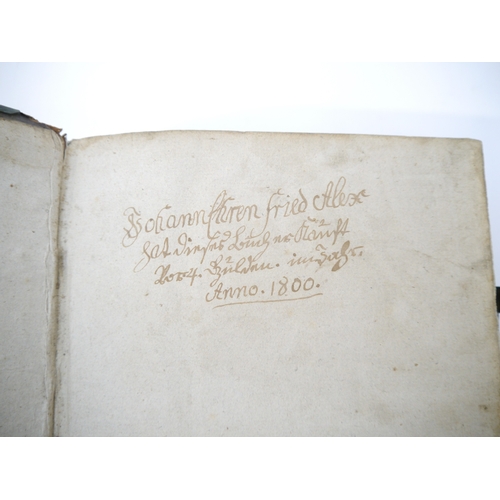 Johann Ehren fried Alex
hat dieses buch er Kauft
Vor 4. Gulden. im Jahr.
Anno. 1800.